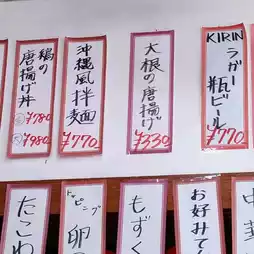 鶏の
唐揚げ丼
¥780
¥980
沖縄風拌麺
¥770
大根の唐揚げ
¥330
KIRIN
ラガー
瓶ビール
¥770
たこわ
トッピング
卵
もずく
お好みてん
中華